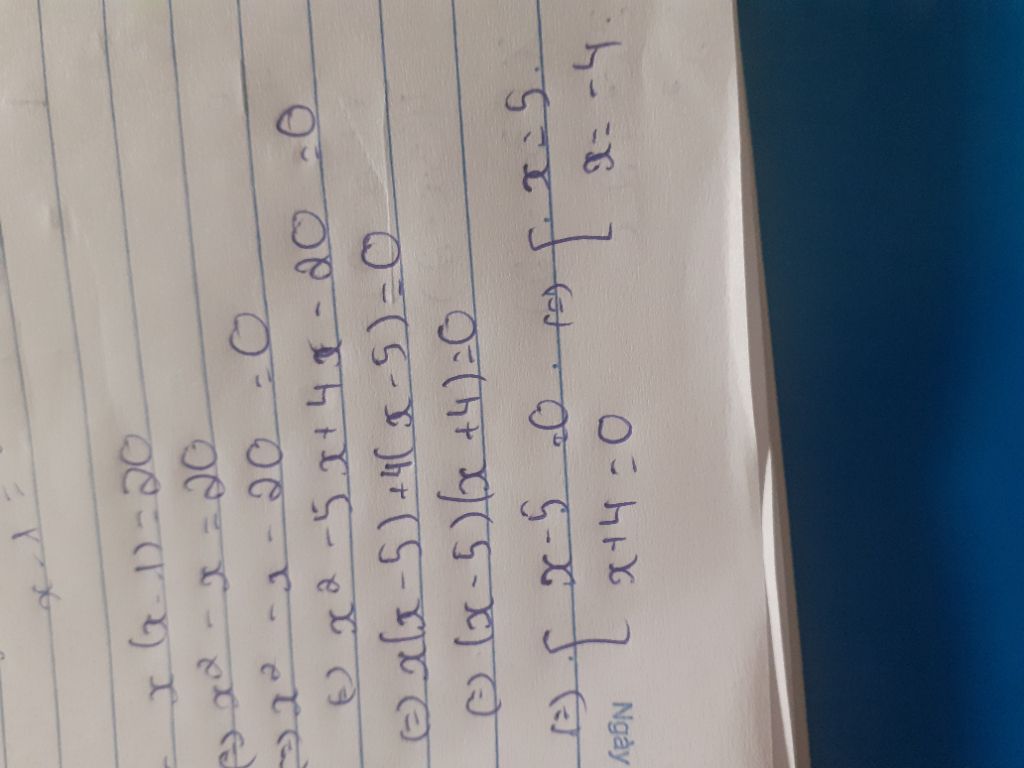 x - 1 =
x(x-1)=20
(=) x² - x = 20
(=) x² - x - 20 = 0
(=) x² - 5x + 4x - 20 = 0
(=) x(x-5)+4(x-5)=0
(=) (x-5)(x+4)=0
(=) [ x-5=0 (=) [ x=5.
x+4=0 x=-4.
Ngày